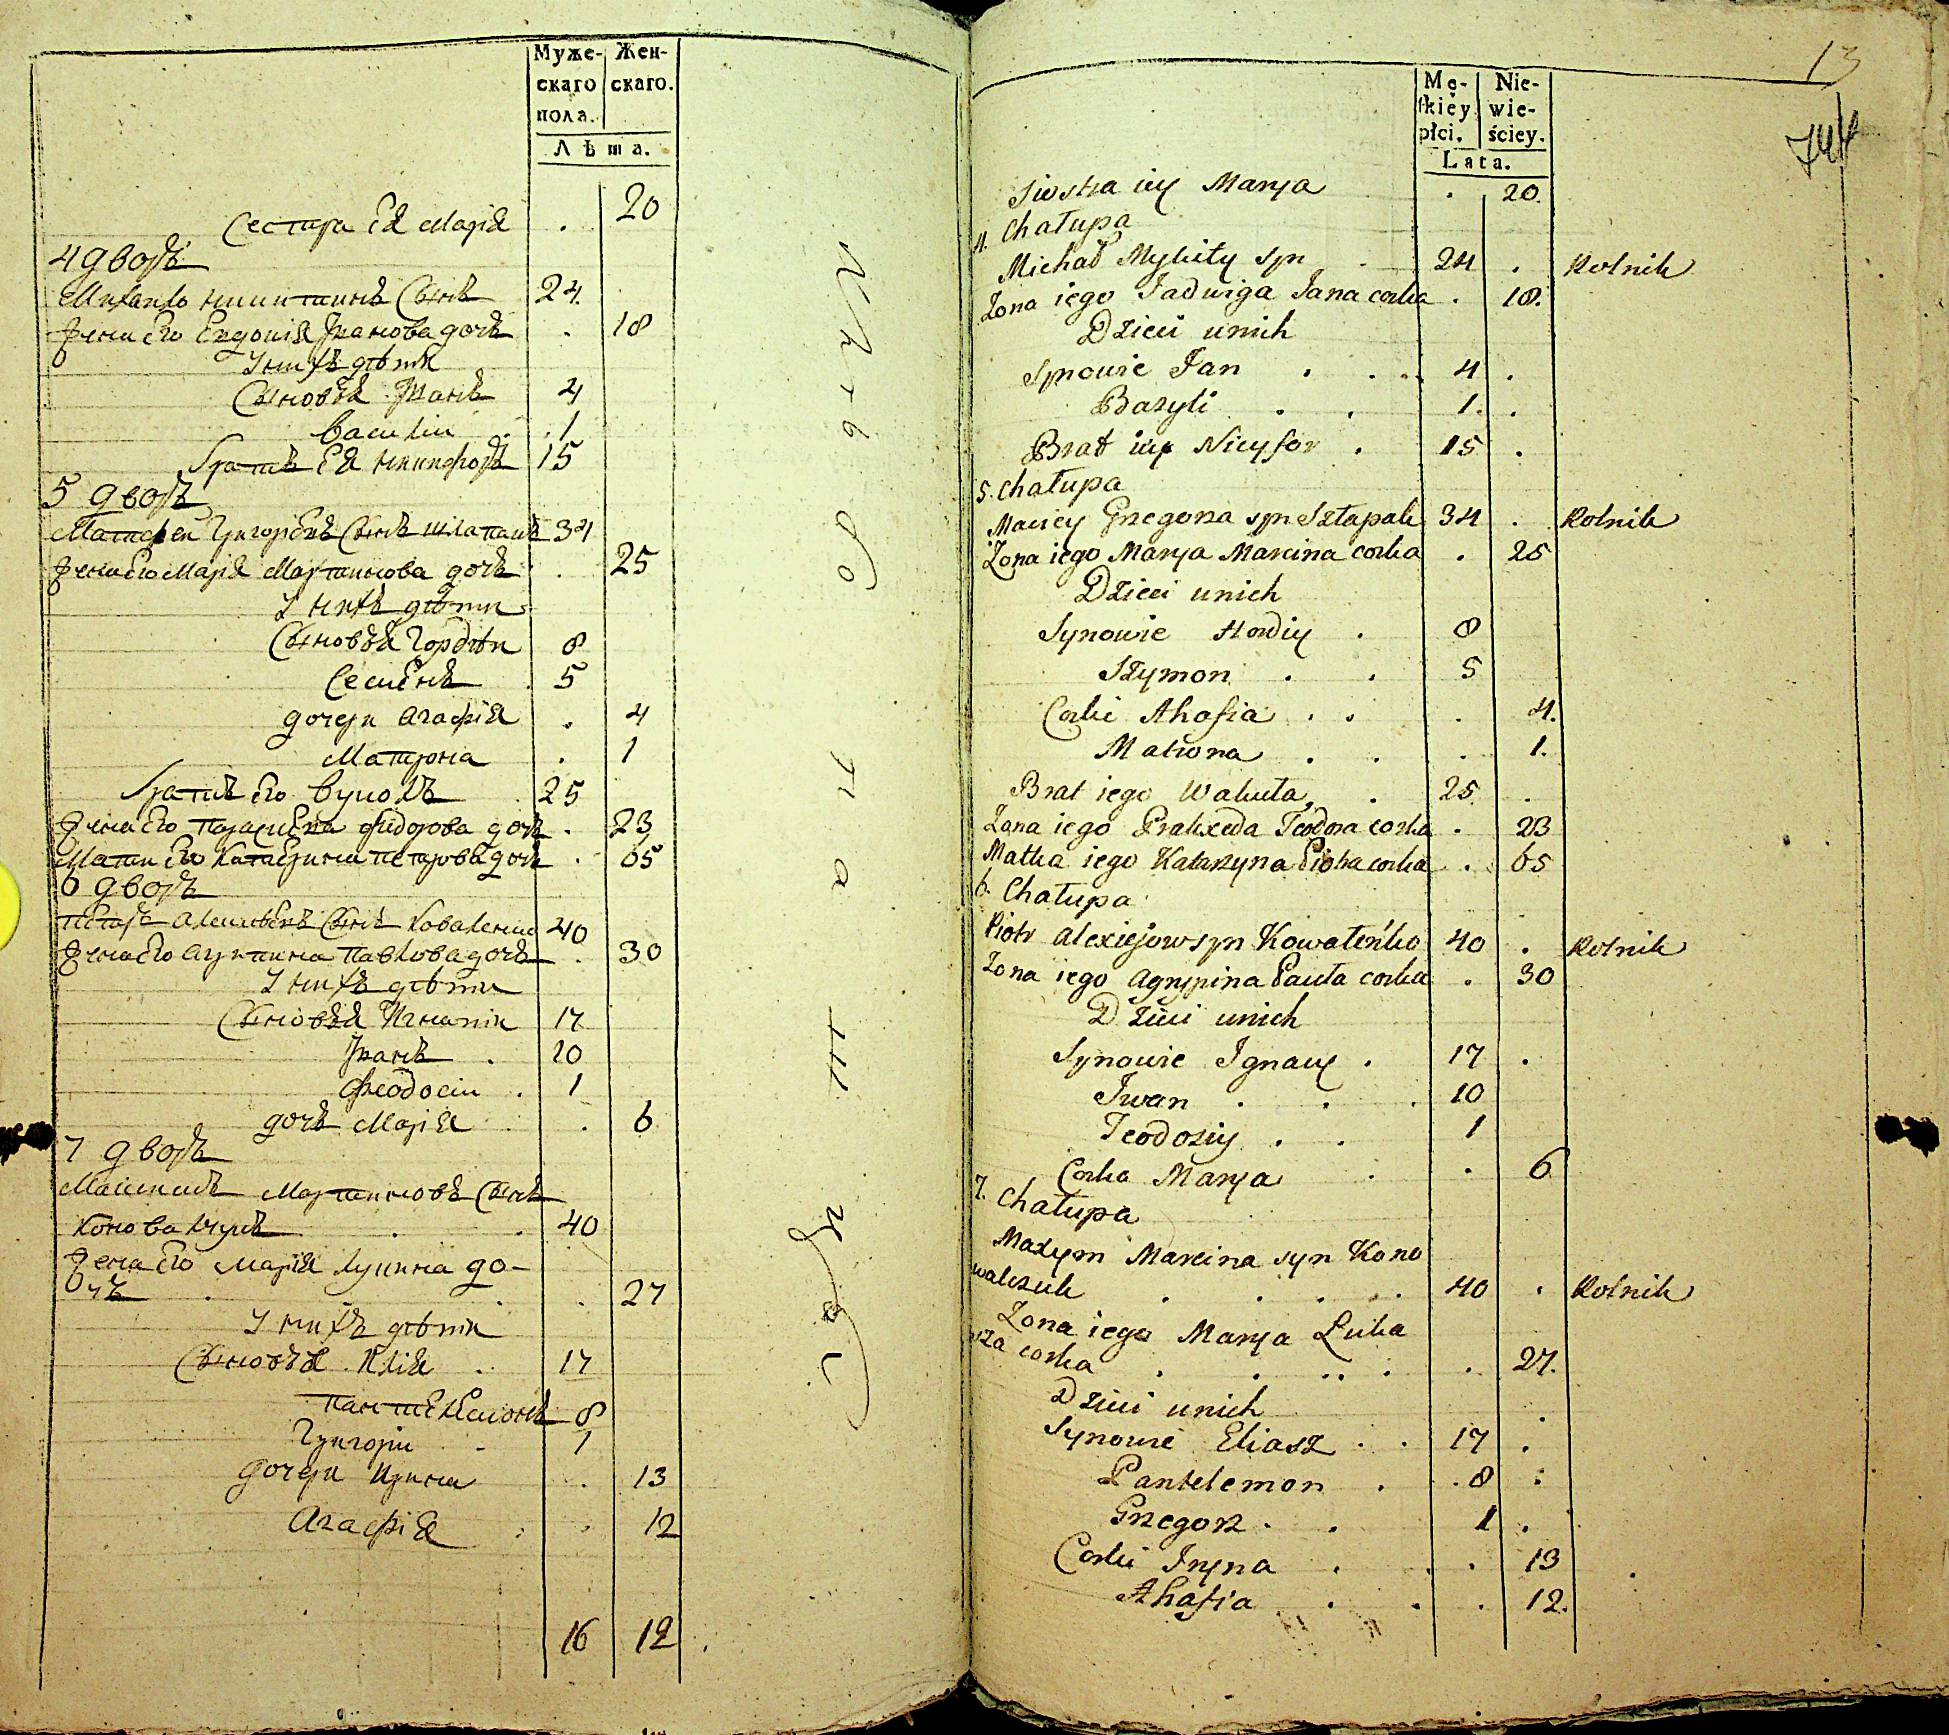 Муже- Жен-
скаго скаго.
пола.
Лѣта.
Сестра Ея Марія . 20
4 дворъ
Михайло Никитинъ Сынъ 24.
Жена Его Евдокія Иванова дочь . 18
У нихъ дѣти
Сыновья Иванъ 4
Василій . 1
Братъ Ея Никифоръ 15
5 дворъ
Матфей Григоріевъ Сынъ 34
Жена Его Марія Мартинова дочь . 25
У нихъ дѣти
Сыновья Гордѣй 8
Семенъ 5
дочери Агафія . 4
Матрона . 1
Братъ Его Вуколъ 25
Жена Его Параскева Фидорова дочь . 23
Мати Его Катерина Петрова дочь . 65
6 дворъ
Петръ Алексѣевъ Сынъ Коваленко 40
Жена Его Агрипина Павлова дочь . 30
У нихъ дѣти
Сыновья Игнатій 17
Иванъ . 10
Феодосій . 1
дочь Марія . 6
7 дворъ
Максимъ Мартиновъ Сынъ
Коновалчукъ . . 40
Жена Его Марія Лукина до-
чь . . . 27
У нихъ дѣти
Сыновья Илія . 17
Пантелемонъ 8
Григорій - 1
дочери Ирина . 13
Агафія . . 12
16 12 .
13
Mę- Nie-
skiéy wie-
płci. ściey.
Lata.
Siostra iey Marya . 20.
4. Chałupa
Michał Mykity syn 24 . Rolnik
Zona iego Jadwiga Jana corka . 18.
Dzieci unich
Synowie Jan . . . 4 .
Bazyli . . 1. .
Brat iey Nicyfor . 15 .
5. Chałupa
Maciey Grzegorza syn Sztapak 34 . Rolnik
Zona iego Marya Marcina corka . 25
Dzieci unich
Synowie Hordiy . 8
Szymon . . 5
Corki Ahafia . . . 4.
Matrona . . . 1.
Brat iego Wakuła . 25. .
Zona iego Praxeda Teodora corka . 23
Matka iego Katarzyna Piotra corka . 65
6. Chałupa
Piotr Alexiejow syn Kowaleńko 40 . Rolnik
Zona iego Agrypina Pawła corka . 30
Dzieci unich
Synowie Ignacy . 17 .
Iwan . . . 10
Teodosiy . . 1
Corka Marya . . 6
7. Chałupa
Maxym Marcina syn Kono
walczuk . . . . . 40 . Rolnik
Zona iego Marya Łuka
sza corka . . . . . . 27.
Dzieci unich
Synowie Eliasz . . 17 .
Pantelemon . . 8 .
Grzegorz . . 1 .
Corki Iryna . . . 13
Ahafia . . . 12.